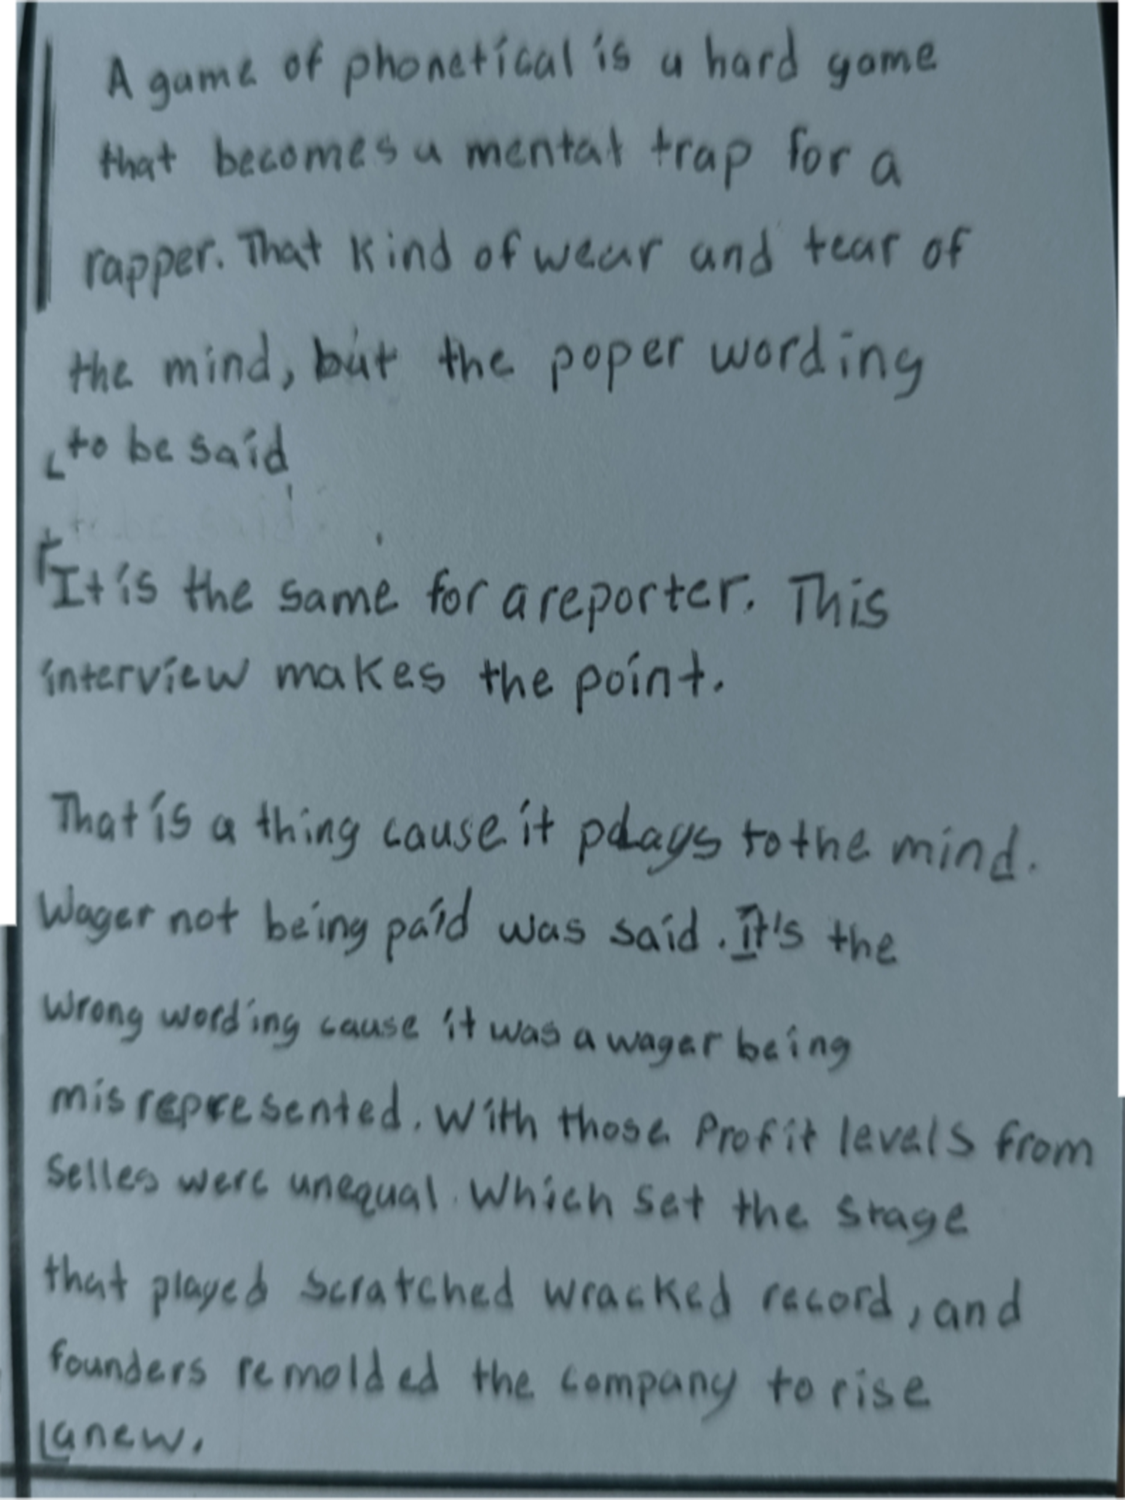 A game of phonetical is a hard game
that becomes a mental trap for a
rapper. That kind of wear and tear of
the mind, but the poper wording
to be said
It is the same for a reporter. This
interview makes the point.
That is a thing cause it plays to the mind.
Wager not being paid was said. It's the
wrong wording cause it was a wager being
misrepresented. With those Profit levels from
selles were unequal. Which set the stage
that played scratched wracked record, and
founders remolded the company to rise
anew.